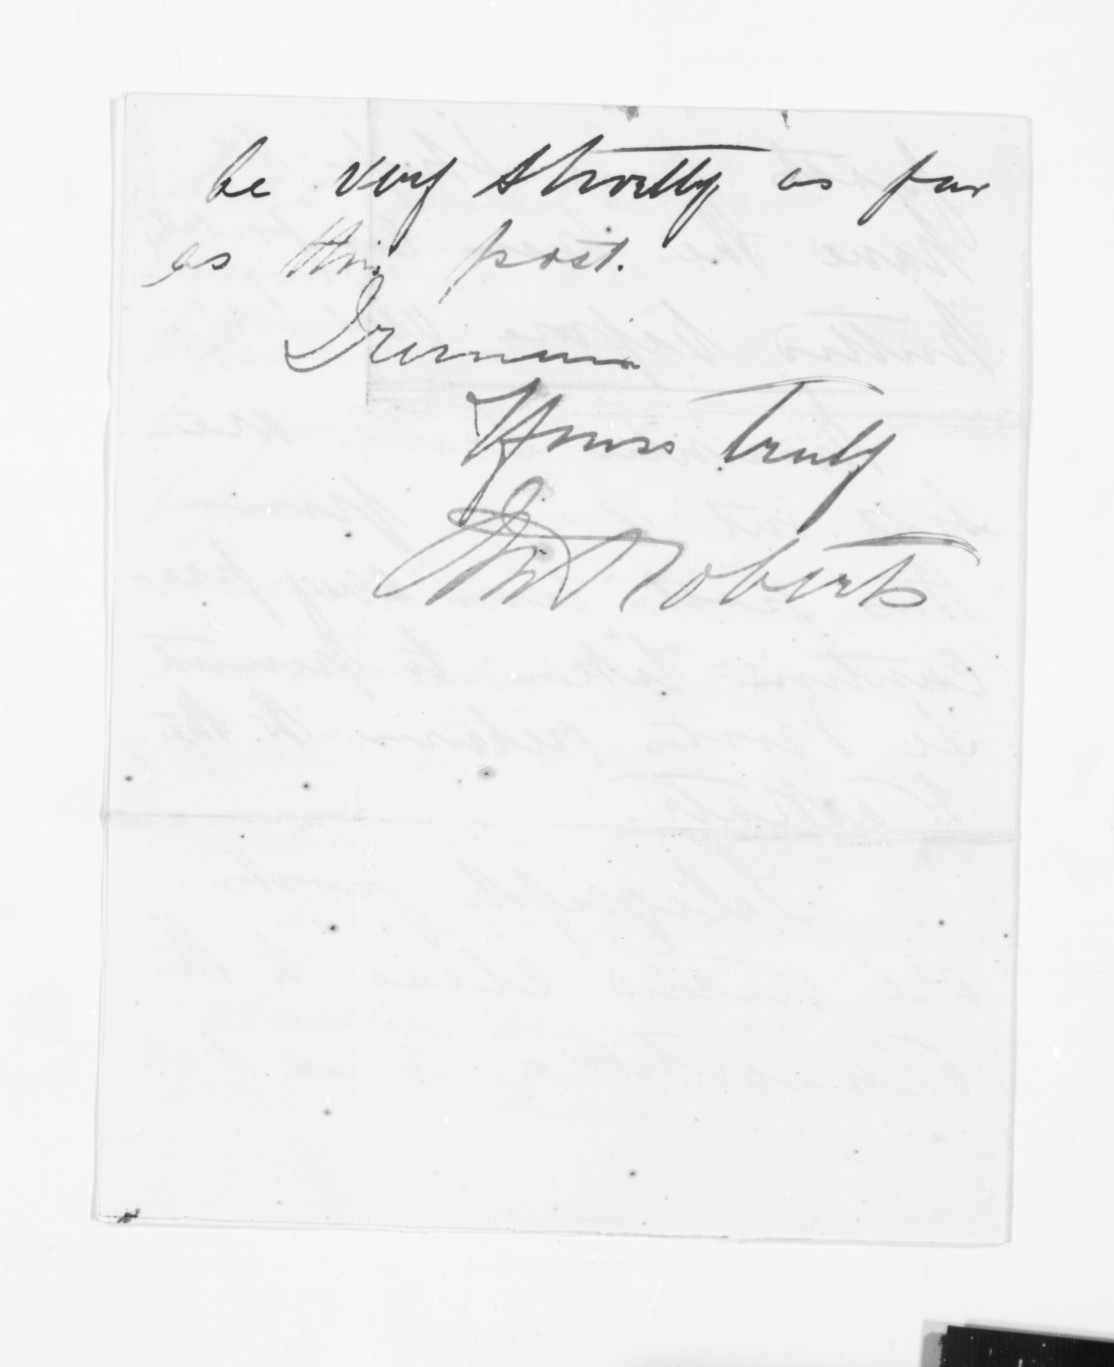 be very shortly as far
as this post.
I remain
Yours Truly
Jn Roberts